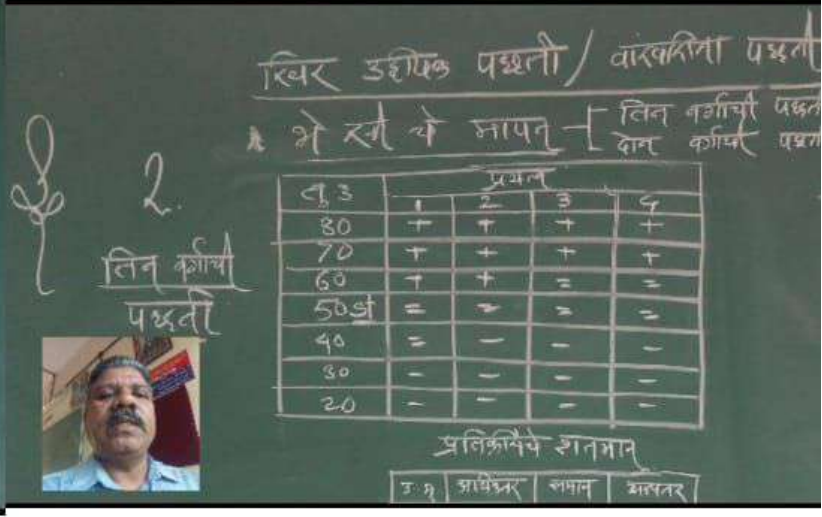 स्थिर उद्दीपक पध्दती / वारंवारिता पध्दती
* भे सी चे मापन - [ तिन वर्गाची पध्दती
दोन वर्गाची पध्दती
2.
तिन वर्गाची
पध्दती
तु उ प्रयत्न
1 2 3 4
80 + + + +
70 + + + +
60 + + = =
50 = = = =
40 = - - -
30 - - - -
20 - - - -
प्रतिक्रियेचे शतमान
समान अल्पतर